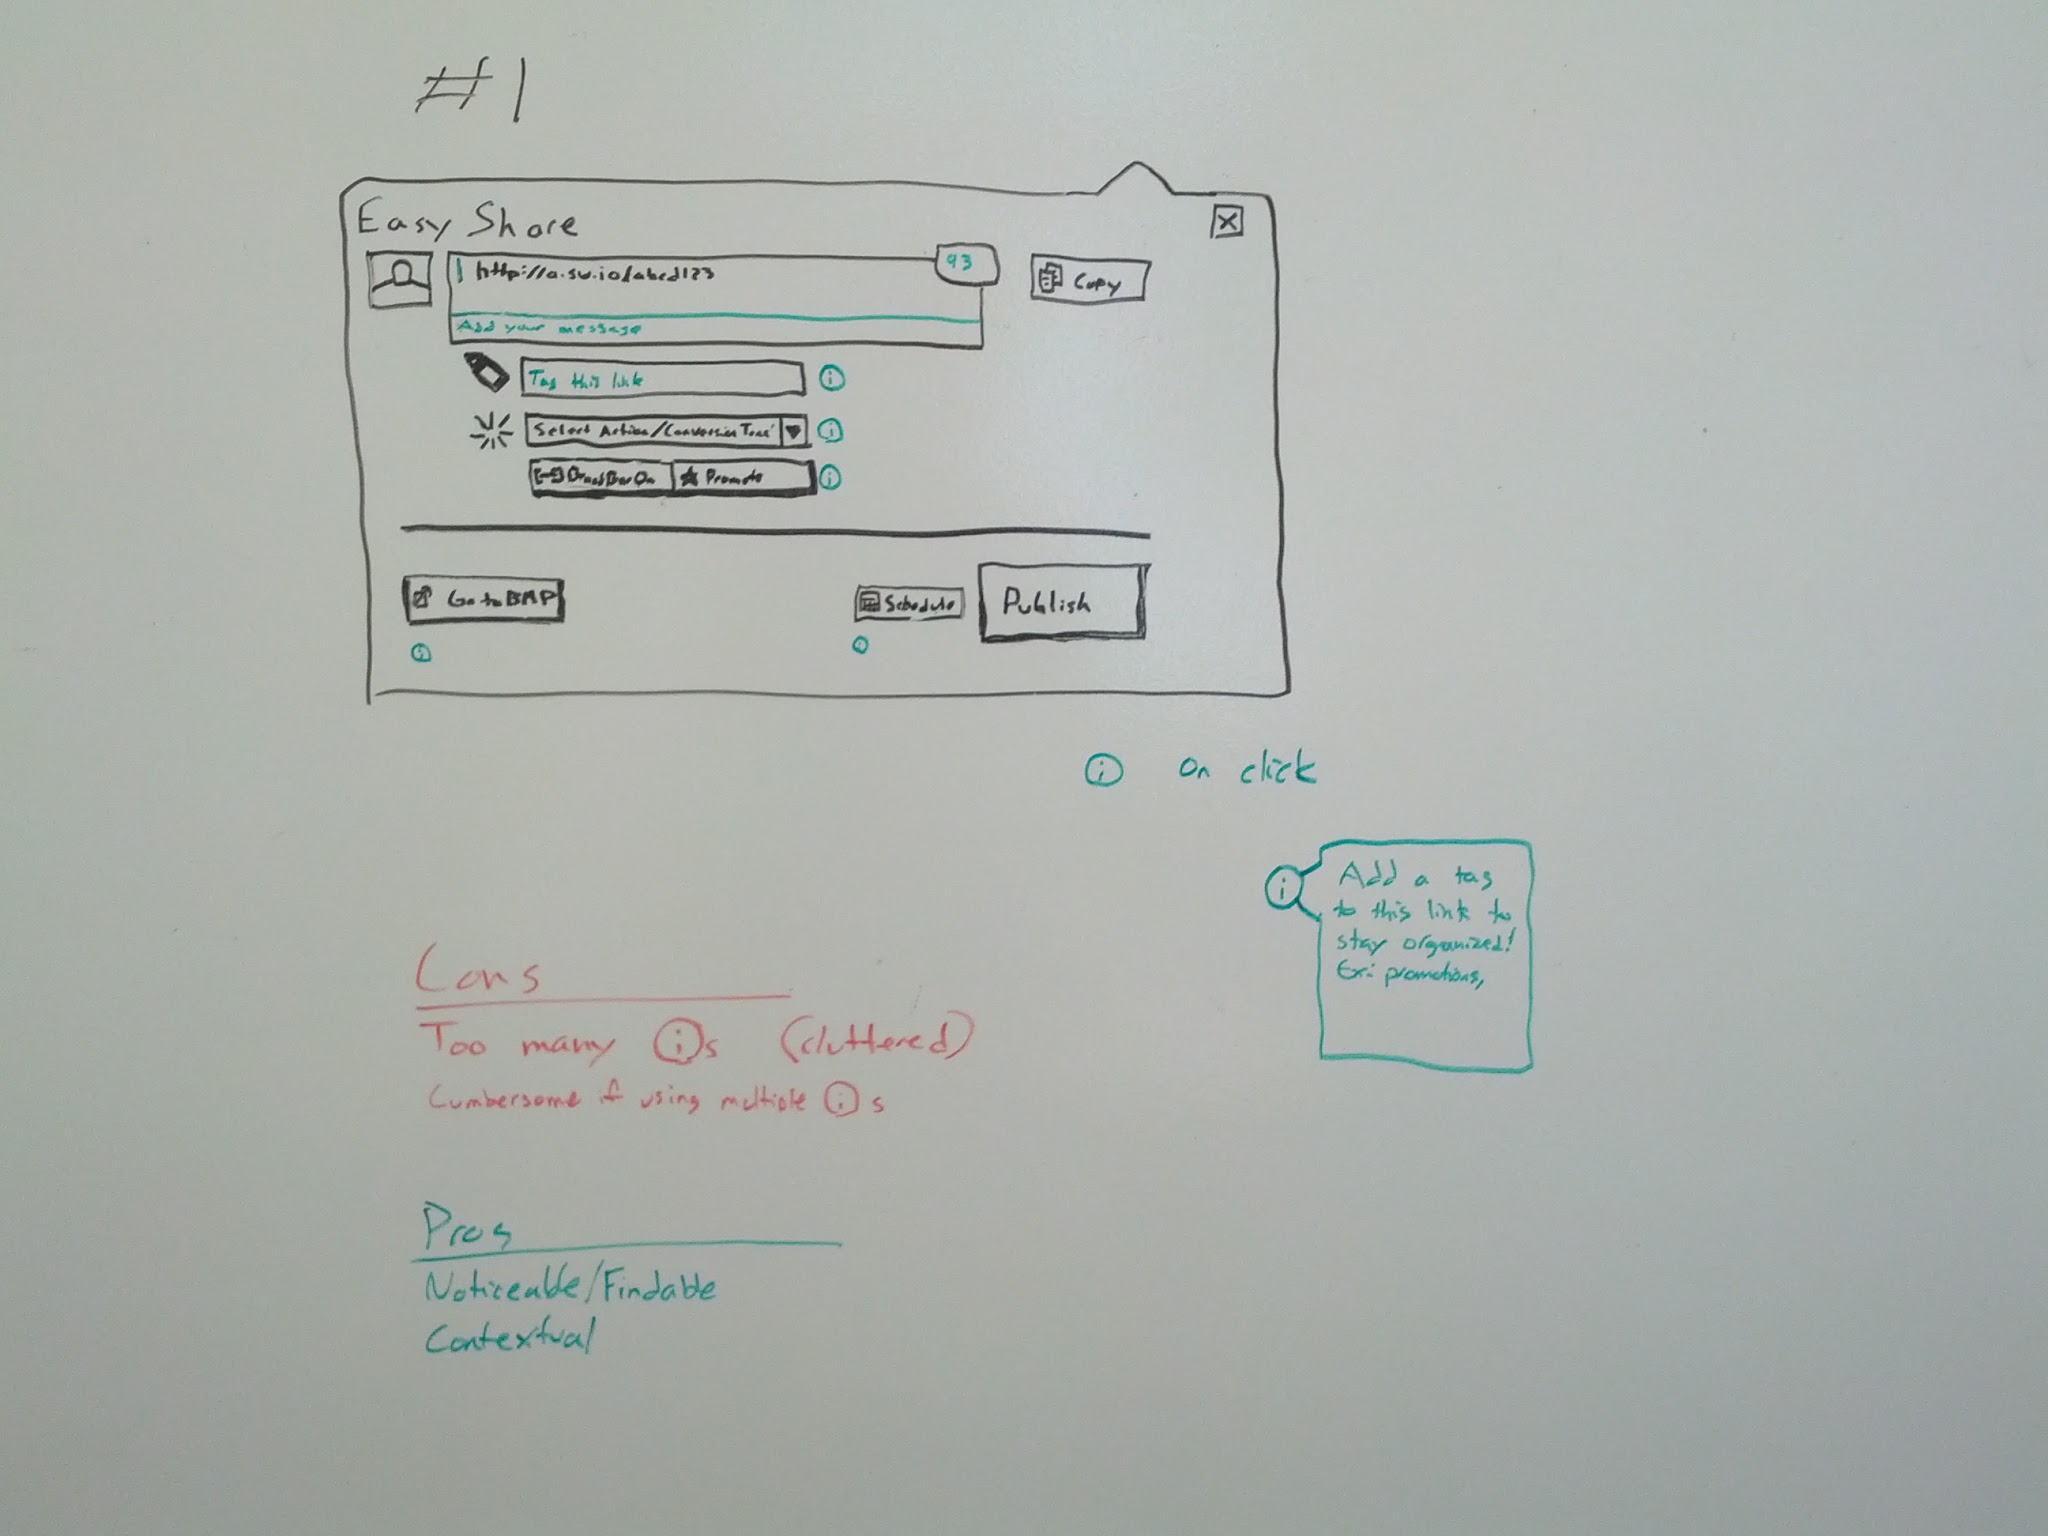 #1
Easy Share
X
http://a.sw.io/abcd123
93
Copy
Add your message
Tag this link
i
Select Action/Conversion
i
Promote
i
Go to BMP
Schedule
Publish
i
i
i On click
i
Add a tag
to this link to
stay organized!
Ex: promotions,
Cons
Too many i s (cluttered)
Cumbersome if using multiple i s
Pros
Noticeable/Findable
Contextual